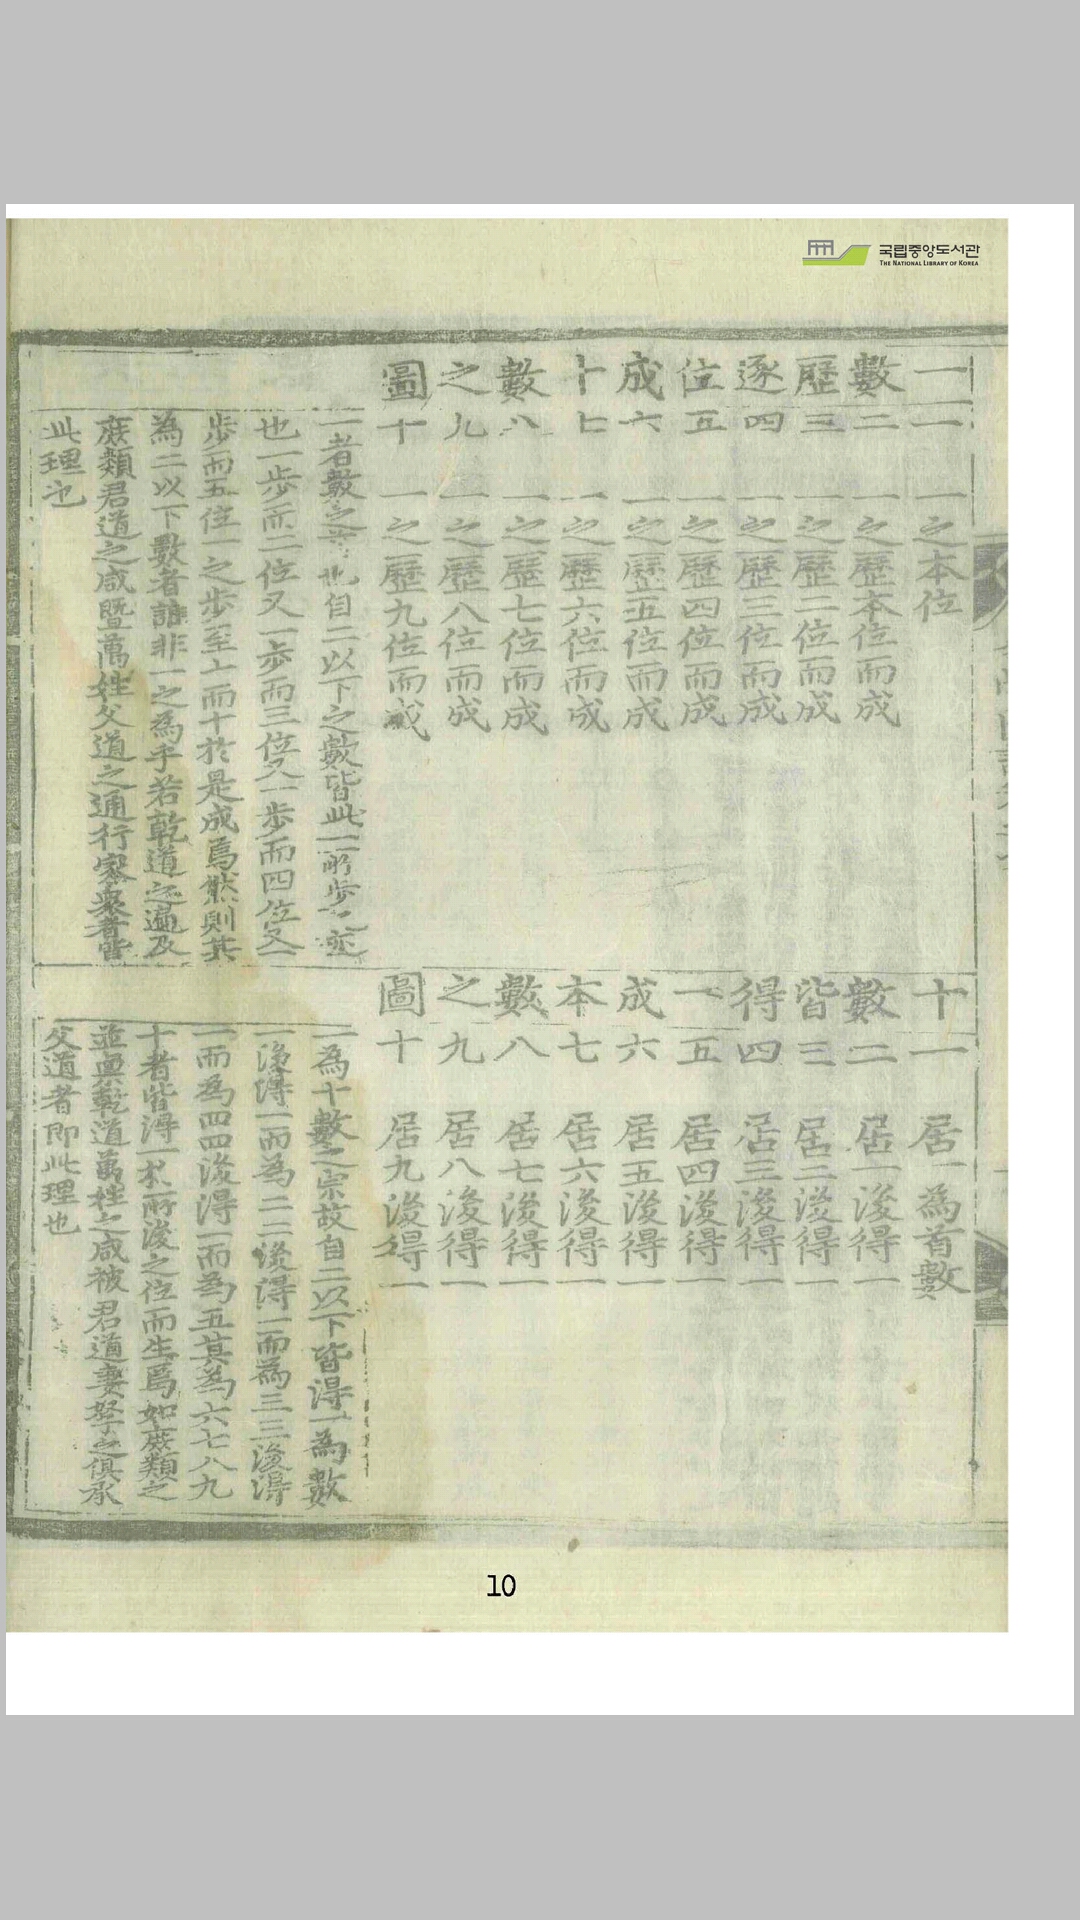 국립중앙도서관
THE NATIONAL LIBRARY OF KOREA
一數歷逐位成十數之圖
一 一之本位
二 一之歷本位而成
三 一之歷二位而成
四 一之歷三位而成
五 一之歷四位而成
六 一之歷五位而成
七 一之歷六位而成
八 一之歷七位而成
九 一之歷八位而成
十 一之歷九位而成
一者數之也自二以下之數皆此一所步
也一步而二位又一步而三位又一步而四位又一
步而五位一之步至六而十於是成焉然則其
為二以下數者誰非一之為乎若乾道之遍及
庶類君道之咸曁萬姓父道之通行家衆者皆
此理也
十數皆得一成本數之圖
一 居一為首數
二 居一後得一
三 居二後得一
四 居三後得一
五 居四後得一
六 居五後得一
七 居六後得一
八 居七後得一
九 居八後得一
十 居九後得一
一為十數之宗故自二以下皆得一為數
一後得一而為二二後得一而為三三後得
一而為四四後得一而為五其為六七八九
十者皆得一於所後之位而生焉如庶類之
並興乾道萬姓之咸被君道妻孥之俱承
父道者即此理也
10